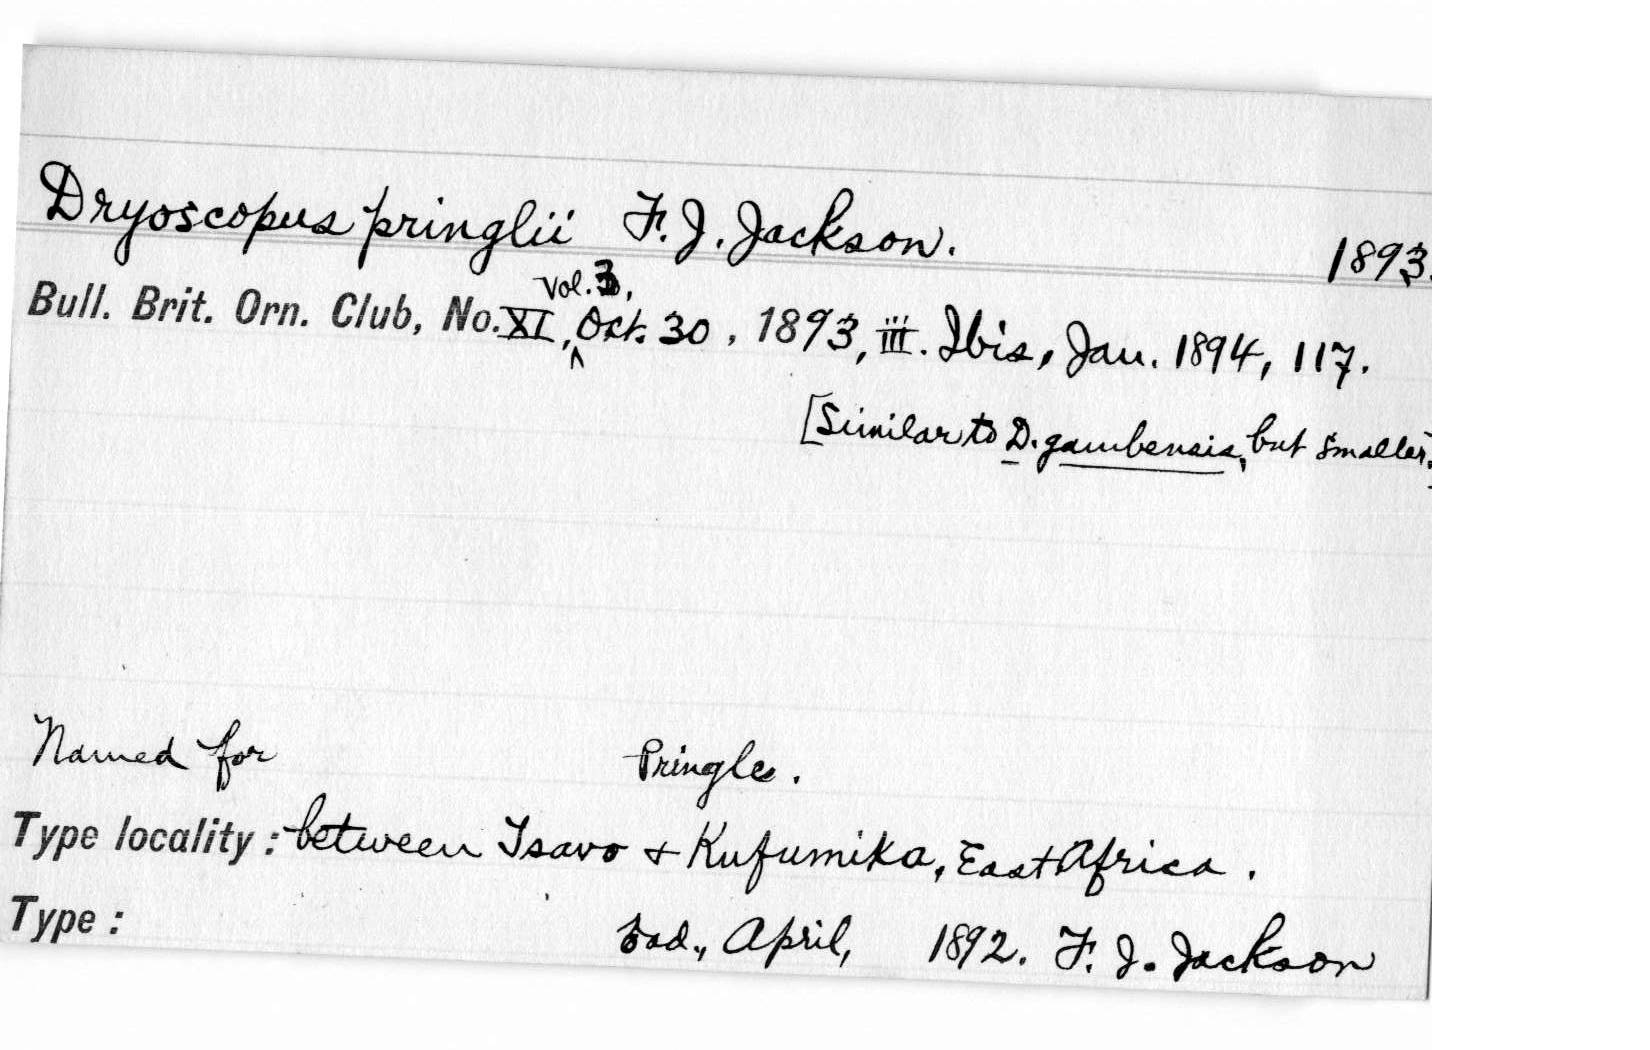 Dryoscopus pringlii F. J. Jackson. 1893.
Bull. Brit. Orn. Club, No. XI, Vol. 3, Oct. 30, 1893, iii. Ibis, Jan. 1894, 117.
[Similar to D. gambensis, but smaller.]
Named for Pringle.
Type locality: between Tsavo & Kufumika, East Africa.
Type: ad., April, 1892. F. J. Jackson